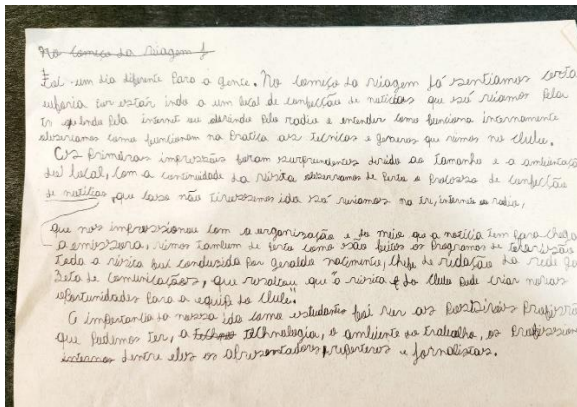 No começo da viagem j
Foi um dia diferente Para a gente. No começo da viagem já sentiamos certa
euforia Por estar indo a um local de confecção de noticias que só viamos Pela
tv ou lendo Pela internet ou ouvindo Pelo radio e entender como funciona internamente
observamos como funcionam na Pratica as tecnicas e generos que vimos no clube.
As Primeiras impressões foram surprendentes devido ao tamanho e a ambientação
do local, com a continuidade da visita observamos de Perto o Processo de confecção
de noticias, que caso não tivessemos ido só veriamos na tv, internet ou radio,
que nos impressionou com a organização e do meio que a noticia tem para chegar
a emissora, vimos tambem de perto como são feitos os Programas de televisão
toda a visita foi conduzida Por geraldo nacimento, chefe de redação da rede
Zeta de comunicações, que resaltou que "a visita do clube Pode criar novas
oportunidades Para a equipe do clube".
O importancia da nossa ida como estudantes foi ver as Possiveis Profissões
que Podemos ter, a technologia, o ambiente de trabalho, os Profissionais
internos dentre eles os apresentadores, reporteres e jornalistas.